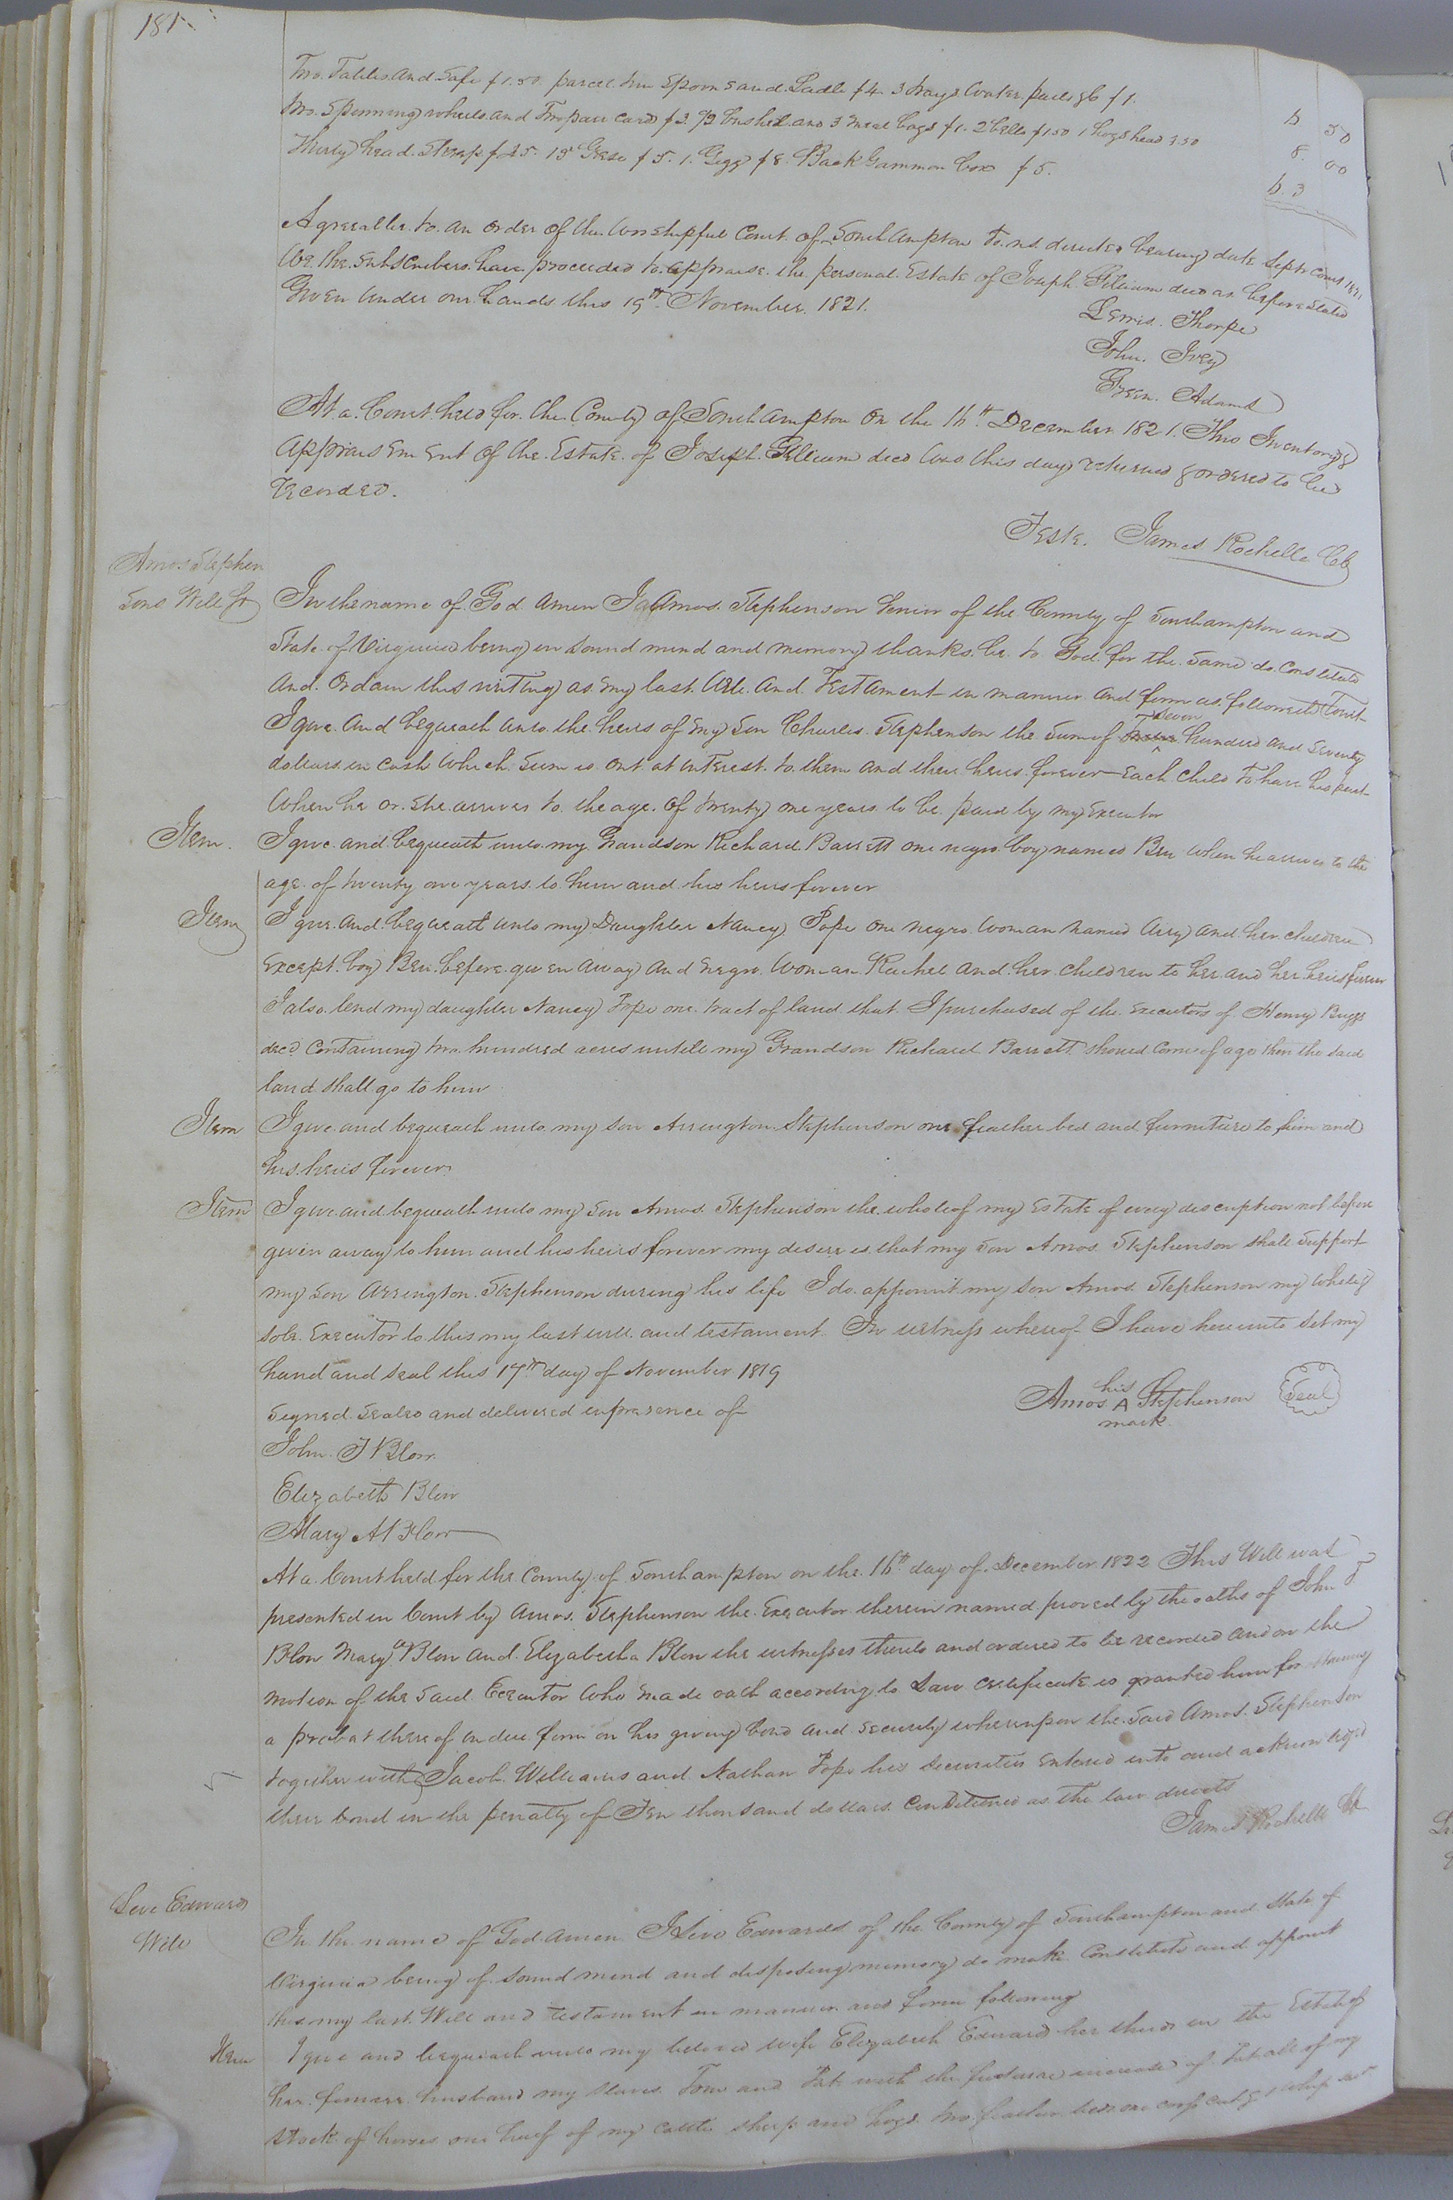 181
Two Tables and Safe $1.50 parcel pew Spoons and Ladle $4 3 trays Water pails &c $1. 6 50
two Spinning wheels and Two pair cards $3 1/2 bushel and 3 meal bags $1. 2 bells $1.50 1 hogshead 2.50 8 00
Thirty head Sheep $25. 15 Geese $5. 1. Gigg $8. Back Gammon box $5. 63
Agreeable to an order of the Worshipful Court of Southampton To us directed bearing date Septr Court 1821
We the Subscribers have proceeded to appraise the personal Estate of Joseph Gilliam decd as before Stated
Given under our hands this 19th November 1821.
Lewis Thorpe
John Ivey
Green Adams
At a Court held for the County of Southampton on the 16th December 1821. This Inventory &
Appraisement of the Estate of Joseph Gilliam decd was this day returned & ordered to be
recorded.
Teste. James Rochelle Clk
Amos Stephen
sons Will Sr
In the name of God Amen I Amos Stephenson Senior of the County of Southampton and
State of Virginia being in sound mind and memory thanks be to God for the same do constitute
and ordain this writing as my last Will and Testament in manner and form as followeth Towit
I give and bequeath unto the heirs of my Son Charles Stephenson the Sum of Seven hundred and Seventy
dollars in cash which Sum is out at interest to them and their heirs forever Each Child to have his part
When he or she arrives to the age of twenty one years to be paid by my Executor
Item. I give and bequeath unto my Grandson Richard Barrett one negro boy named Ben when he arrives to the
age of twenty one years to him and his heirs forever
Item I give and bequeath unto my Daughter Nancy Pope one negro woman named Airy and her children
Except boy Ben before given away and negro Woman Rachel and her children to her and her heirs forever
I also lend my daughter Nancy Pope one tract of land that I purchased of the Executors of Henry Briggs
decd Containing two hundred acres untill my Grandson Richard Barrett should come of age then the said
land shall go to him
Item I give and bequeath unto my son Arrington Stephenson one feather bed and furniture to him and
his heirs forever
Item I give and bequeath unto my son Amos Stephenson the whole of my Estate of every description not before
given away to him and his heirs forever my desire is that my son Amos Stephenson shall support
my son Arrington Stephenson during his life I do appoint my son Amos Stephenson my whole &
sole Executor to this my last will and testament In witness whereof I have hereunto set my
hand and seal this 17th day of November 1819
Signed Sealed and delivered in presence of
his
Amos A Stephenson Seal
mark
John T Blow
Elizabeth Blow
Mary A Blow
At a Court held for the County of Southampton on the 16th day of December 1822 This Will was
presented in Court by Amos Stephenson the Executor therein named proved by the oaths of John T
Blow Mary A Blow and Elizabeth a Blow the witnesses thereto and ordered to be recorded and on the
motion of the said Executor Who made oath according to Law certificate is granted him for obtaining
a probat thereof in due form on his giving bond and security whereupon the said Amos Stephenson
together with Jacob Williams and Nathan Pope his securities Entered into and acknowledged
their bond in the penalty of Ten thousand dollars conditioned as the law directs
James Rochelle Clk
Levi Edwards
Will
In the name of God Amen I Levi Edwards of the County of Southampton and State of
Virginia being of sound mind and disposing memory do make Constitute and appoint
this my last Will and testament in manner and form following
Item I give and bequeath unto my beloved wife Elizabeth Edwards her thirds in the Estate of
her former husband my slaves Tom and Pat with the future increase of Pat all of my
stock of horses one half of my cattle sheep and hogs two feather beds one